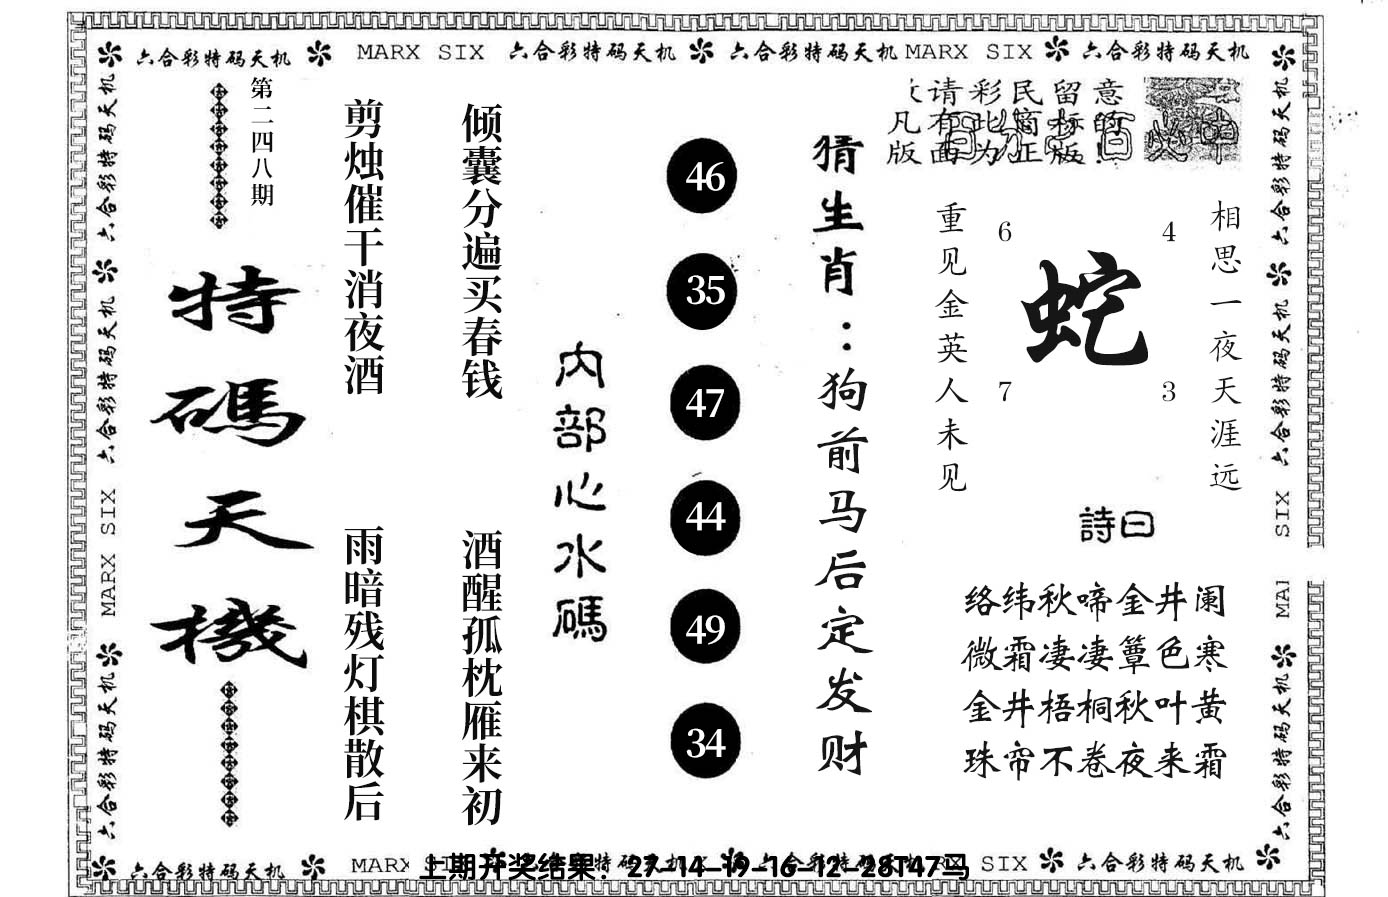 六合彩特码天机 MARX SIX 六合彩特码天机 六合彩特码天机 MARX SIX 六合彩特码天机
六合彩特码天机 六合彩特码天机 MARX SIX 六合彩特码天机
第二四八期
特碼天機
剪烛催干消夜酒
雨暗残灯棋散后
倾囊分遍买春钱
酒醒孤枕雁来初
内部心水碼
46
35
47
44
49
34
猜生肖：狗前马后定发财
请彩民留意
凡有此商标的
版面为正版
重见金英人未见
6 4
蛇
7 3
相思一夜天涯远
詩曰
络纬秋啼金井阑
微霜凄凄簟色寒
金井梧桐秋叶黄
珠帘不卷夜来霜
六合彩特码天机 六合彩特码天机 SIX MAI 六合彩特码天机
六合彩特码天机 MARX SIX 六合彩特码天机
上期开奖结果：27-14-19-16-12-28T47马
SIX 六合彩特码天机